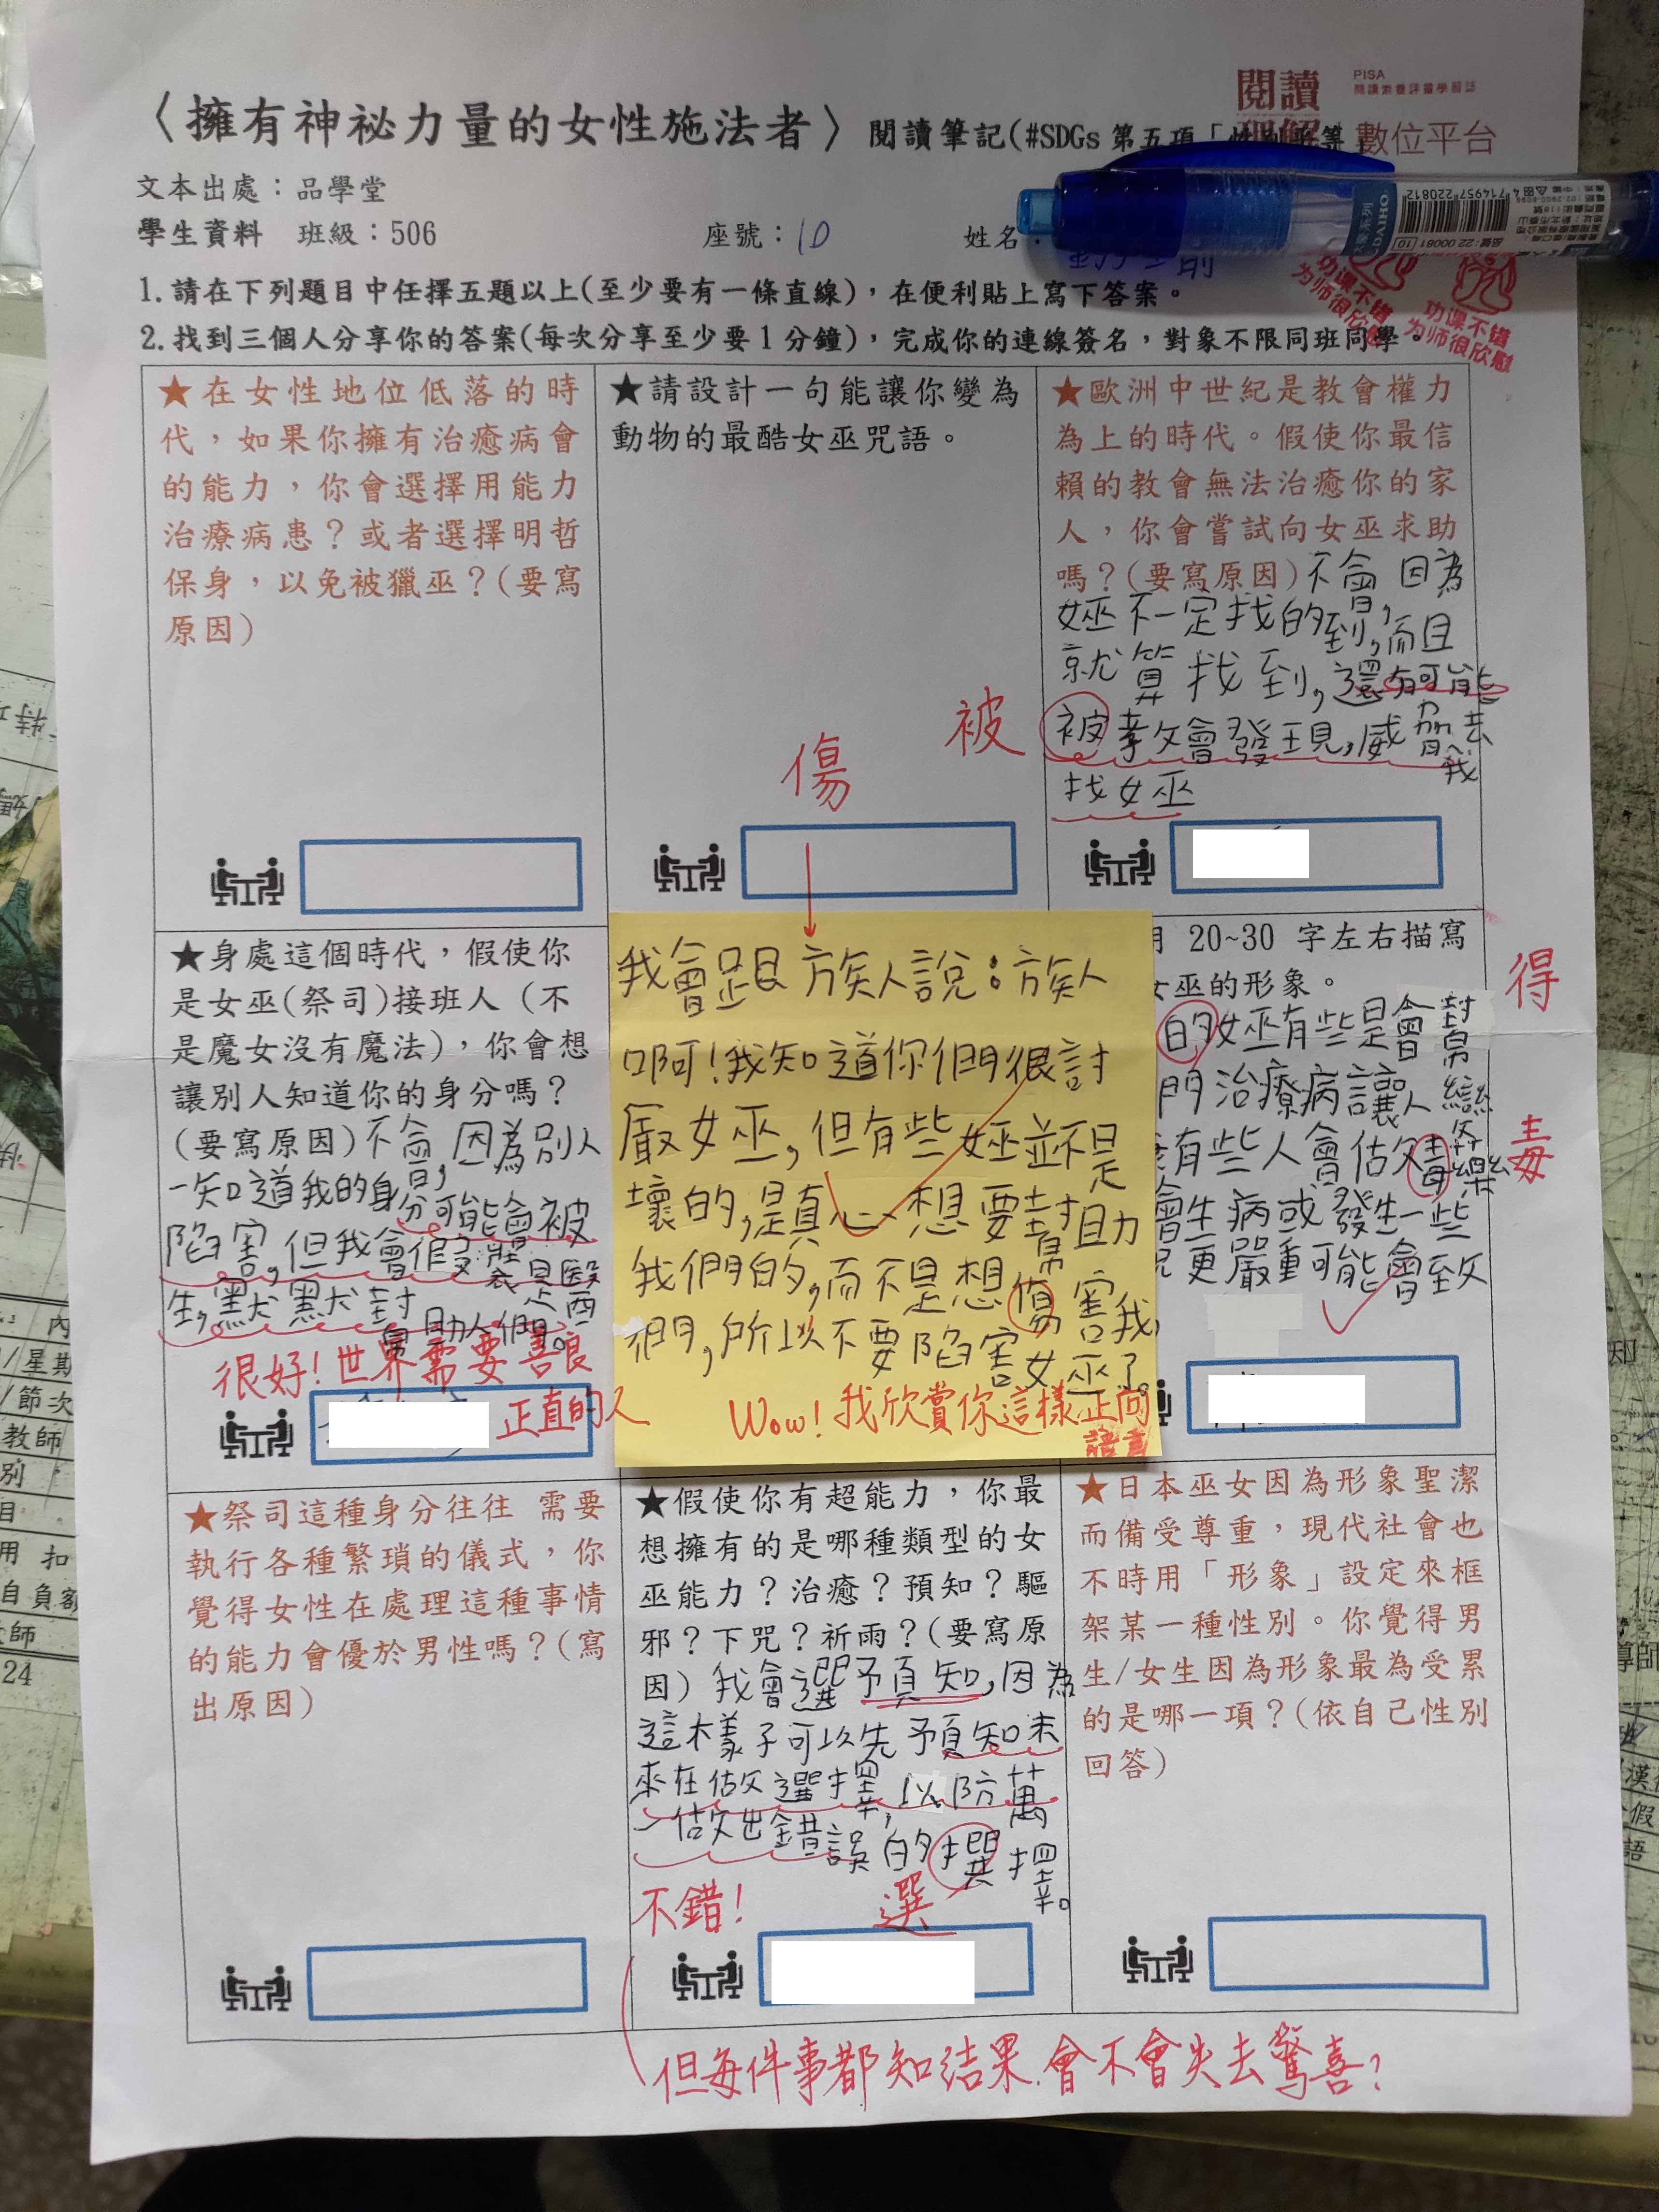 〈擁有神祕力量的女性施法者〉閱讀筆記(#SDGs 第五項「性別平等
閱讀
理解
PISA
閱讀素養評量學習誌
數位平台
文本出處：品學堂
學生資料 班級：506
座號：10
姓名：
7 714957 220812
22 00081
DAIHO
功课不错
为师很欣慰
功课不错
为师很欣慰
1.請在下列題目中任擇五題以上(至少要有一條直線)，在便利貼上寫下答案。
2.找到三個人分享你的答案(每次分享至少要 1 分鐘)，完成你的連線簽名，對象不限同班同學。
★在女性地位低落的時
代，如果你擁有治癒病會
的能力，你會選擇用能力
治療病患？或者選擇明哲
保身，以免被獵巫？(要寫
原因)
★請設計一句能讓你變為
動物的最酷女巫咒語。
★歐洲中世紀是教會權力
為上的時代。假使你最信
賴的教會無法治癒你的家
人，你會嘗試向女巫求助
嗎？(要寫原因)不會 因為
女巫不一定找的到,而且
就算找到,還有可能
被教會發現,威脅我去
找女巫
被
傷
★身處這個時代，假使你
是女巫(祭司)接班人（不
是魔女沒有魔法），你會想
讓別人知道你的身分嗎？
（要寫原因）不會,因為別人
一知道我的身分可能會被
陷害,但我會假裝是醫
生,默默幫助人們。
很好！世界需要善良
正直的人
我會跟族人說：族人
啊！我知道你們很討
厭女巫,但有些女巫並不是
壞的,是真心想要幫助
我們的,而不是想傷害我
們,所以不要陷害女巫了。
Wow！我欣賞你這樣正向
語言
用 20~30 字左右描寫
女巫的形象。
的女巫有些是會幫
們治療病讓人變
有些人會做毒藥
會生病或發生一些
更嚴重可能會致
得
毒
★祭司這種身分往往 需要
執行各種繁瑣的儀式，你
覺得女性在處理這種事情
的能力會優於男性嗎？(寫
出原因)
★假使你有超能力，你最
想擁有的是哪種類型的女
巫能力？治癒？預知？驅
邪？下咒？祈雨？(要寫原
因) 我會選預知,因為
這樣子可以先預知未
來在做選擇,以防萬
一做出錯誤的撰擇。
不錯！
選
★日本巫女因為形象聖潔
而備受尊重，現代社會也
不時用「形象」設定來框
架某一種性別。你覺得男
生/女生因為形象最為受累
的是哪一項？(依自己性別
回答)
但每件事都知結果.會不會失去驚喜？